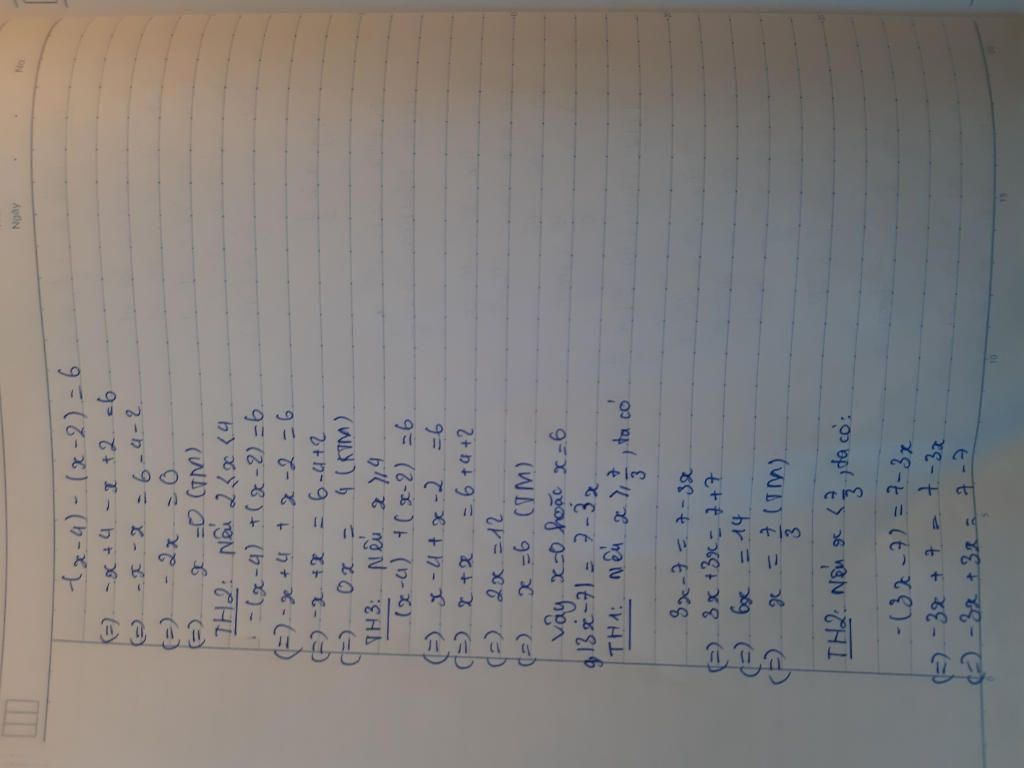 No
Ngày
-(x-4) - (x-2) = 6
(=) -x+4 - x +2 =6
(=) -x - x = 6-4-2
(=) -2x = 0
(=) x = 0 (TM)
TH2: Nếu 2 ≤ x < 4
-(x-4) + (x-2) = 6
(=) -x+4 + x-2 = 6
(=) -x+x = 6-4+2
(=) 0x = 4 (KTM)
TH3: Nếu x ≥ 4
(x-4) + (x-2) = 6
(=) x-4+x-2 = 6
(=) x+x = 6+4+2
(=) 2x = 12
(=) x = 6 (TM)
Vậy x=0 hoặc x=6
g) |3x-7| = 7-3x
TH1: Nếu x ≥ 7/3, ta có
3x-7 = 7-3x
(=) 3x+3x = 7+7
(=) 6x = 14
(=) x = 7/3 (TM)
TH2: Nếu x < 7/3, ta có:
-(3x-7) = 7-3x
(=) -3x + 7 = 7-3x
(=) -3x+3x = 7-7
0 5 10 15 20